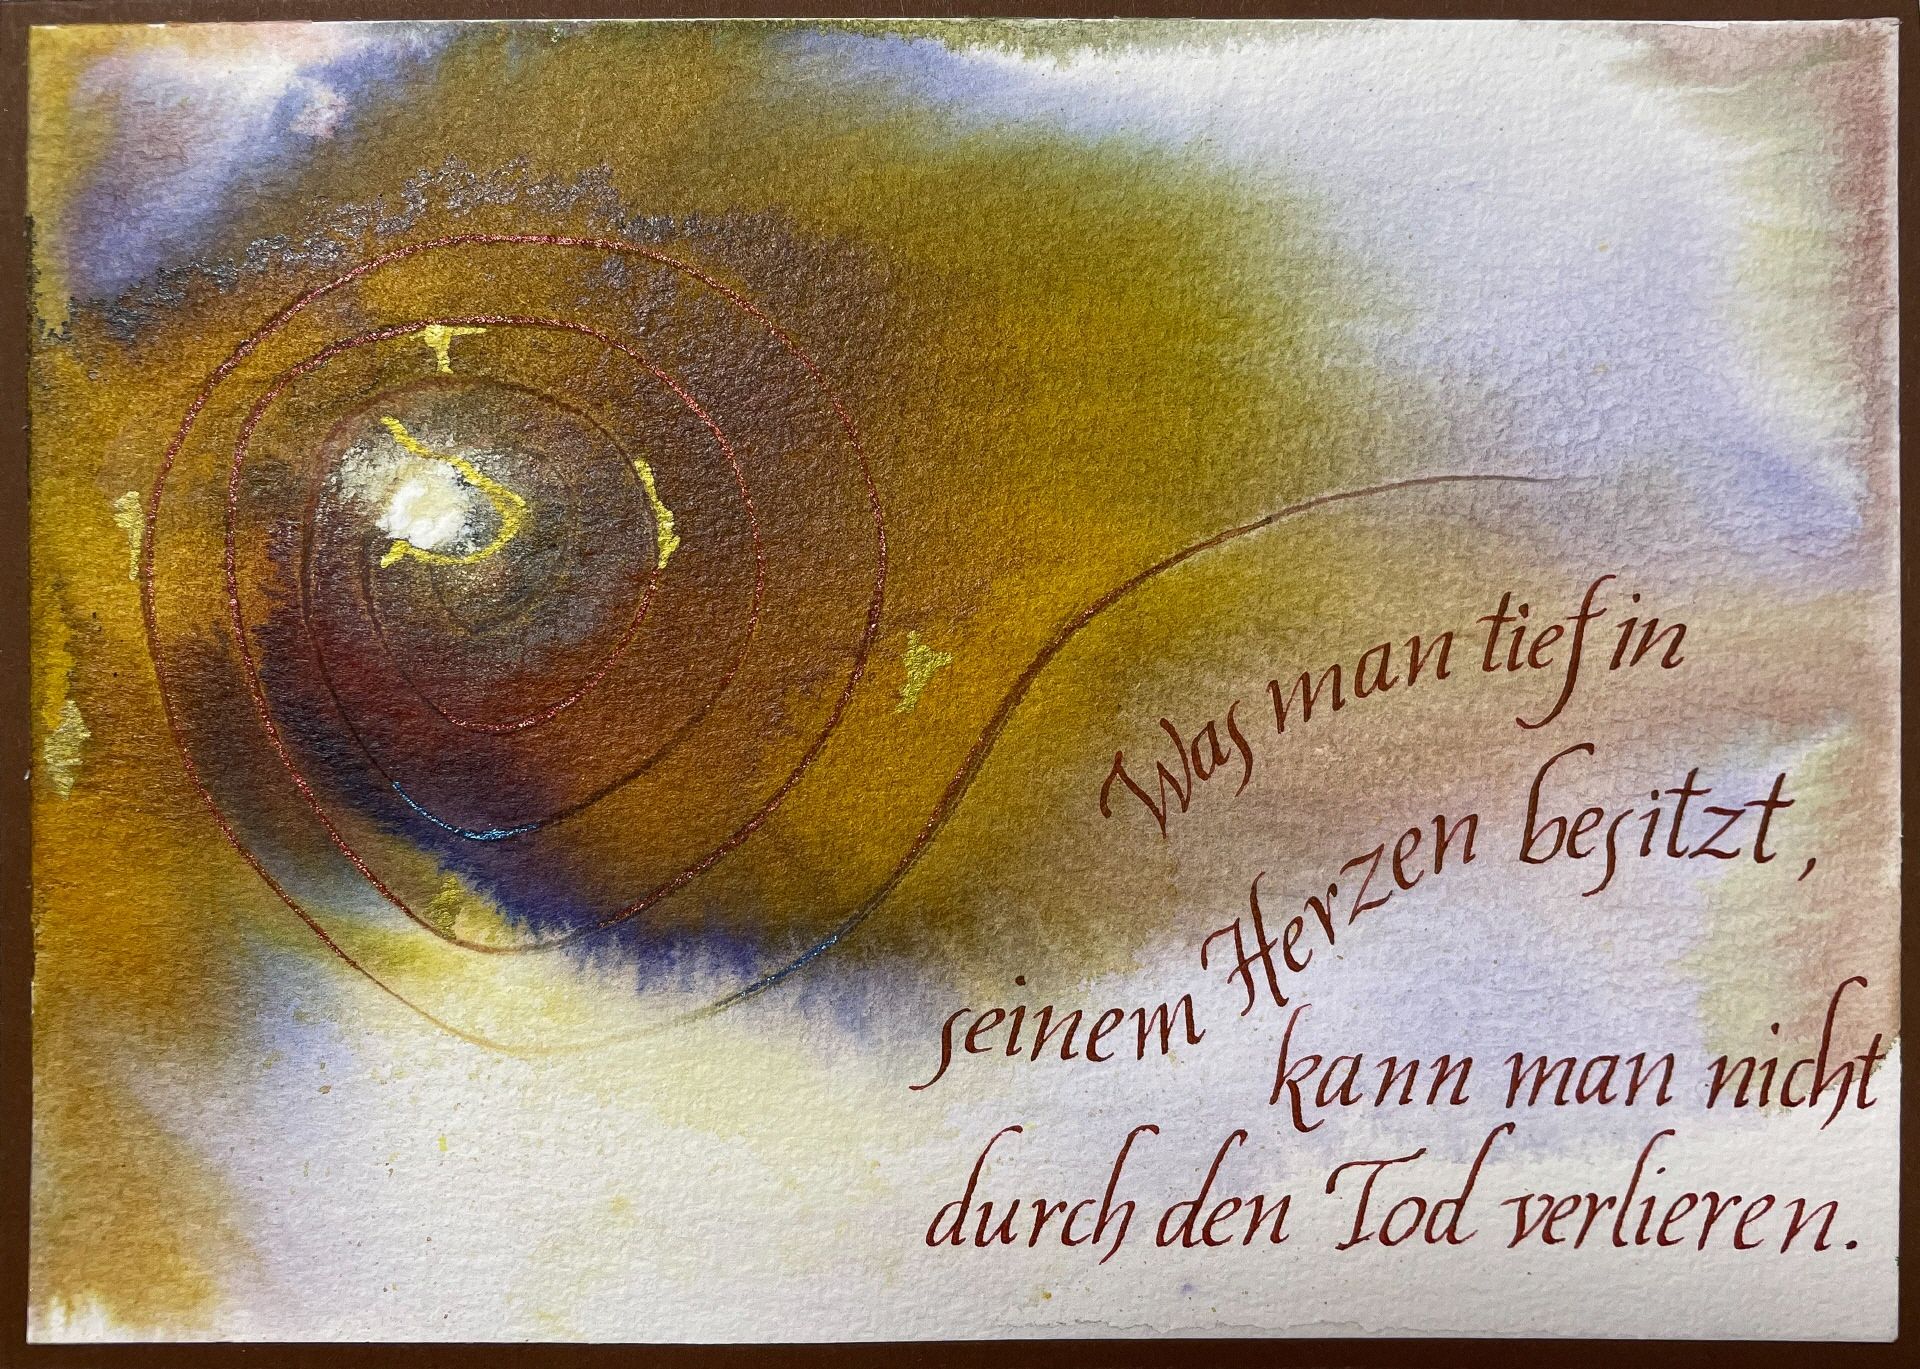 Was man tief in
seinem Herzen besitzt,
kann man nicht
durch den Tod verlieren.